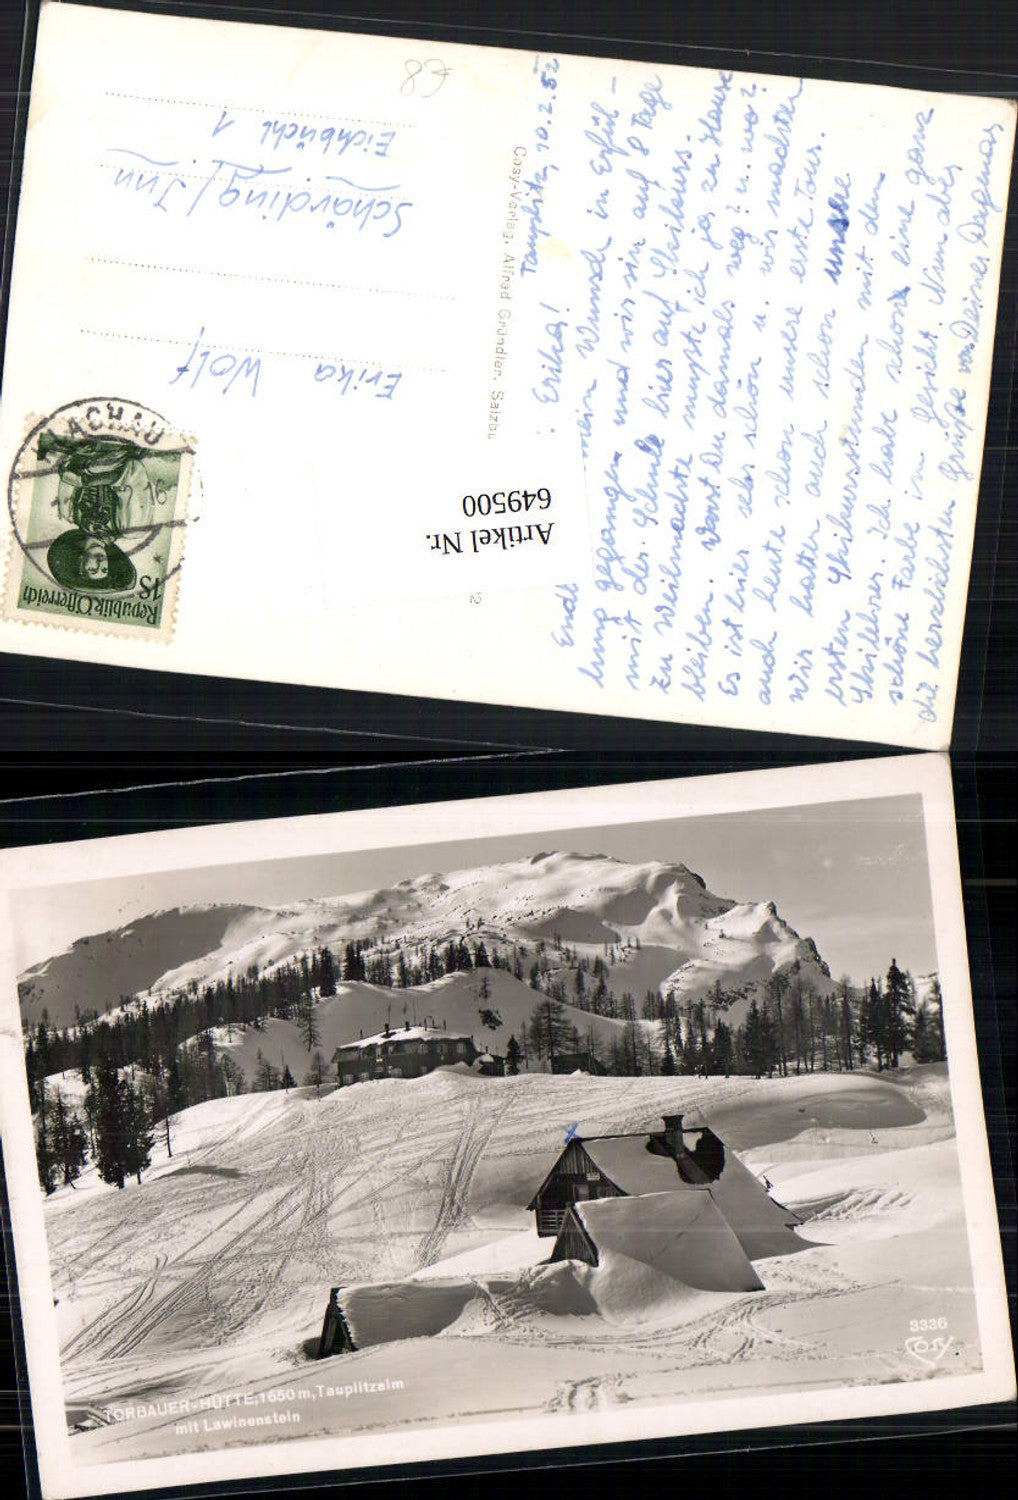 Tauplitz, 10.2.52
Erika!
Endl mein Wunsch in Erfül-
lung gegangen und wir sin auf 8 Tage
mit der Schule hier auf Skikurs.
Zu Weihnachte mußte ich ja zu Hause
bleiben. Warst Du damals weg? u. wo?
Es ist hier sehr schön u. wir machten
auch heute schon unsere erste Tour.
Wir hatten auch schon unsere
ersten Skikursstunden mit dem
Skilehrer. Ich habe schon eine ganz
schöne Farbe im Gesicht. Nun aber
die herzlichsten Grüße von Deiner Dagmar
Cosy-Verlag, Alfred Gründler, Salzbu
Erika Wolf
Schärding/Inn
Eichbüchl 1
68
Artikel Nr.
649500
2
Republik Österreich
1S
ACHAU
TORBAUER-HÜTTE, 1650 m, Tauplitzalm
mit Lawinenstein
3336
COSY